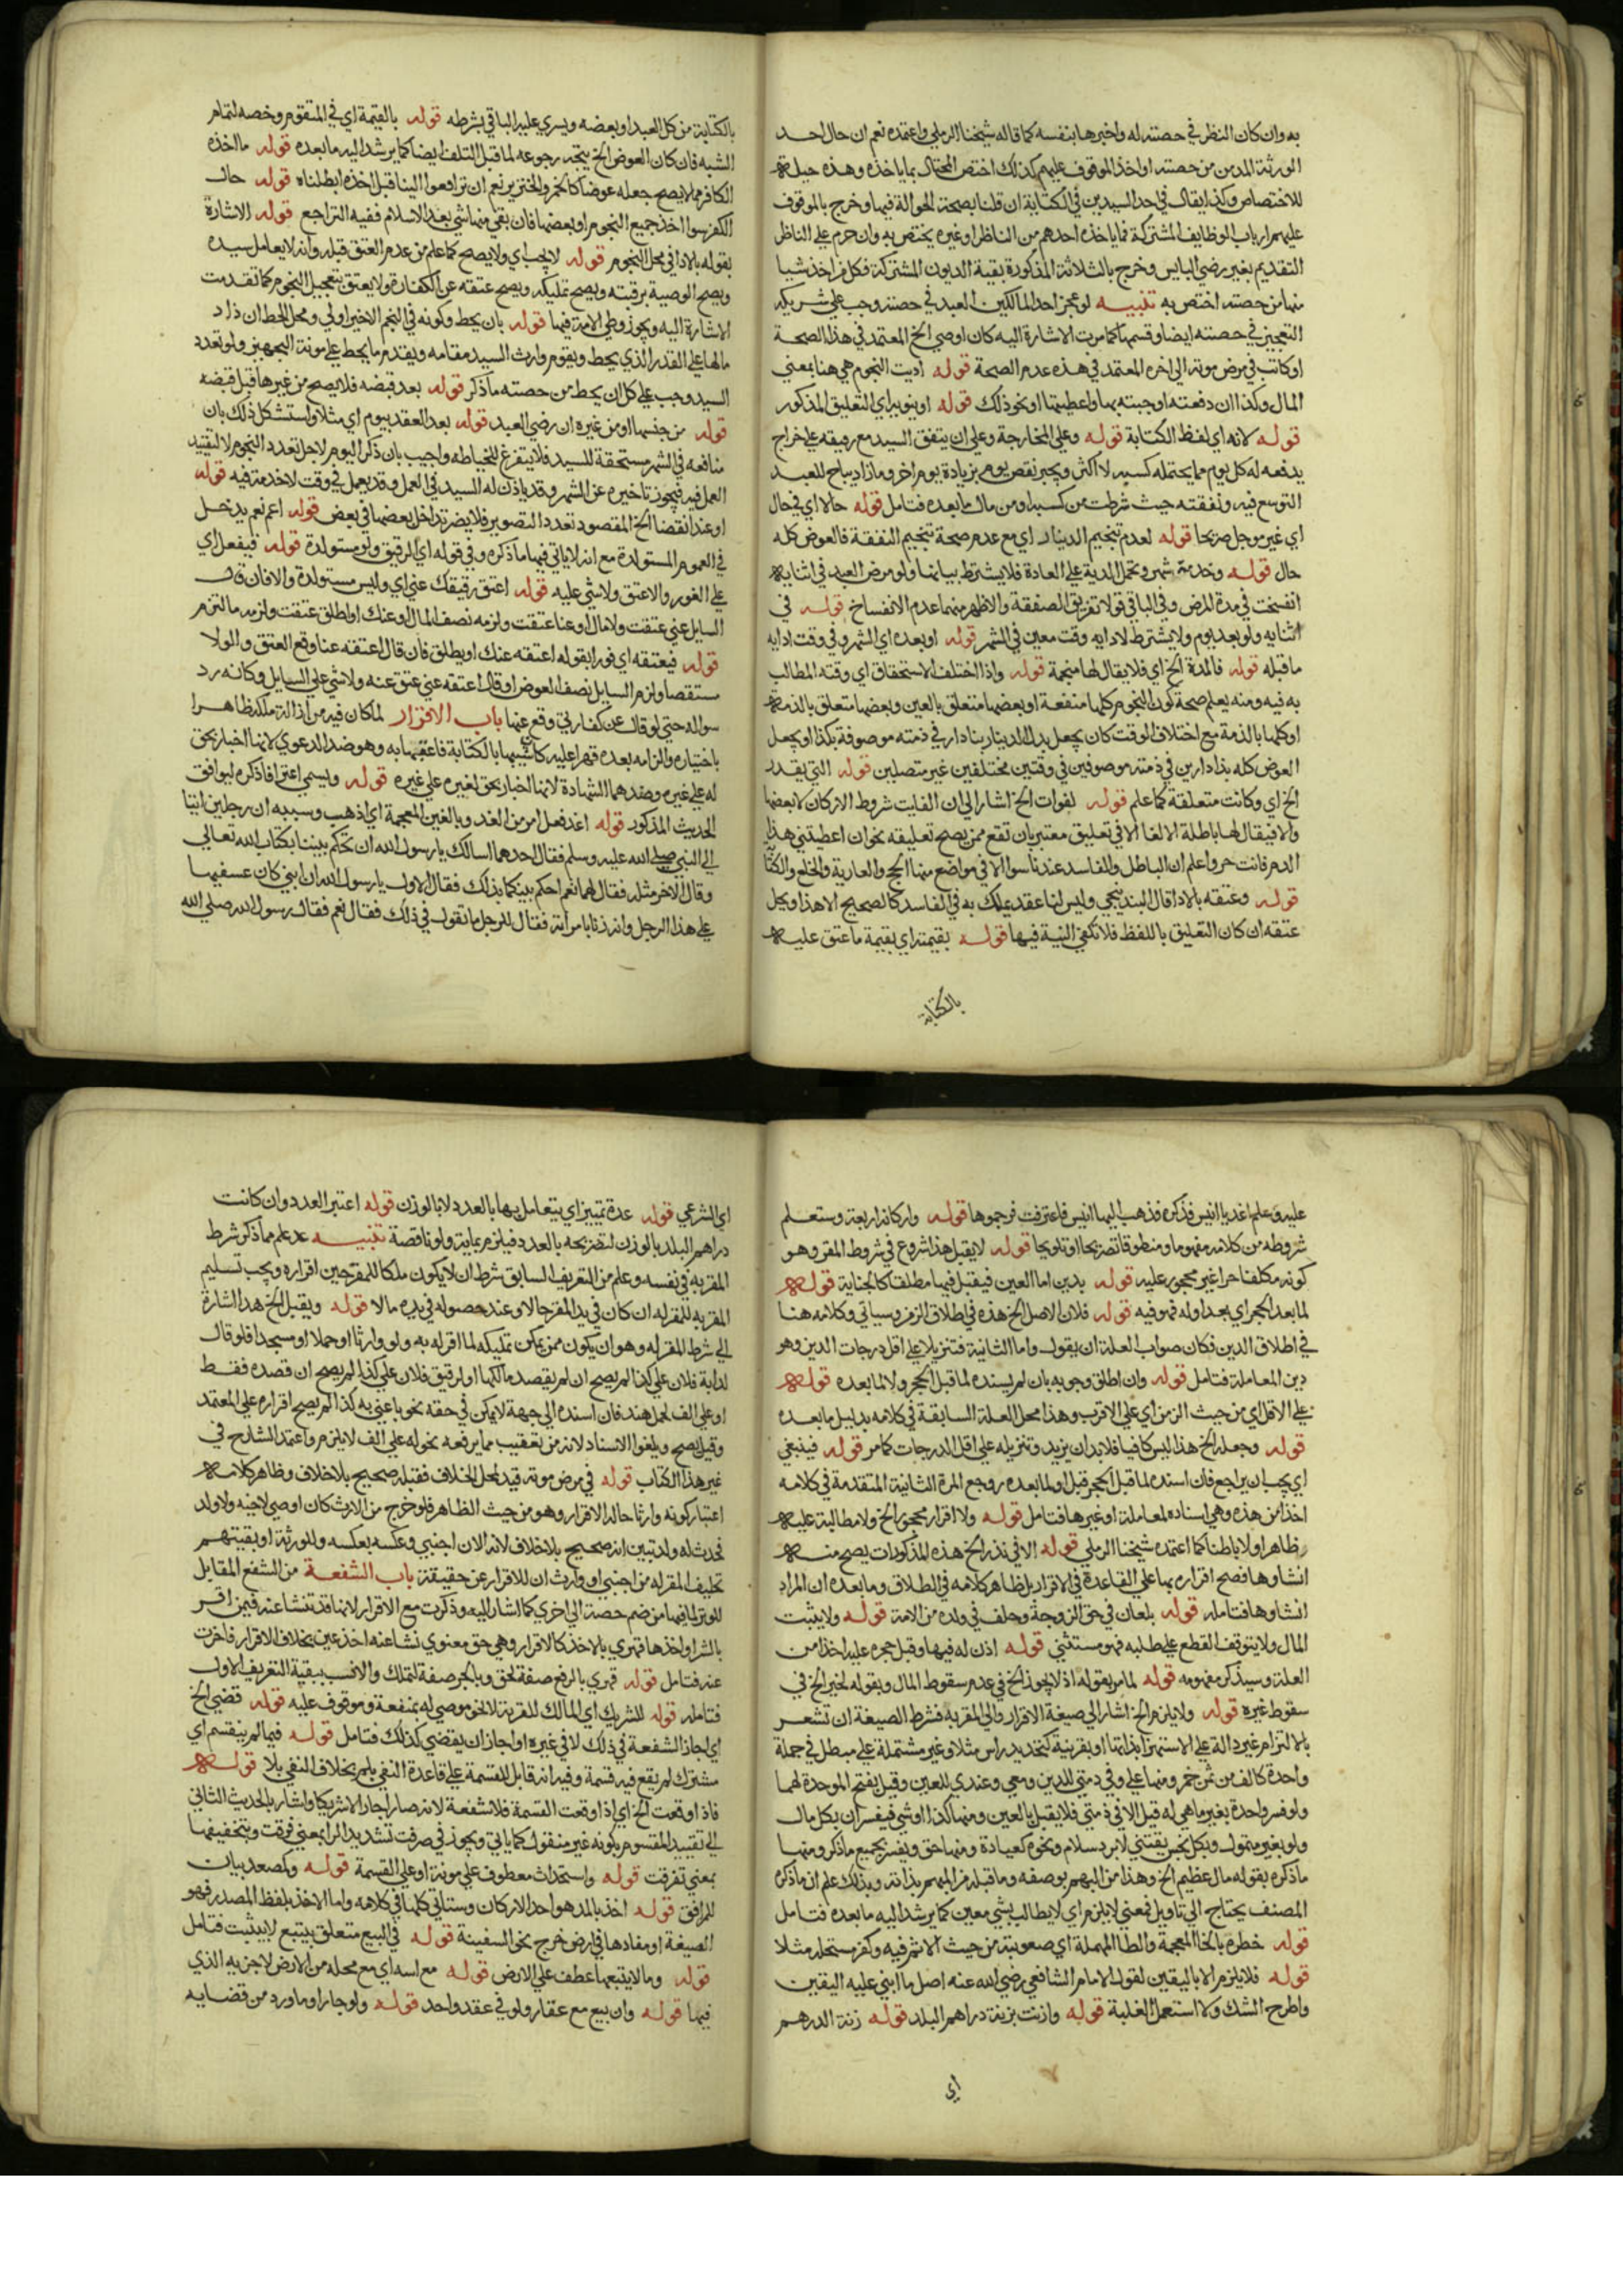 به وان كان النظر في حصته له واخبرها بنفسه كما قاله شيخنا الرملي واعتمده نعم ان حال احد
الورثة المدين من حصته او اخذ الموقوف عليهم كذلك اختص المحتال بما ياخذه وهذه حيلة
للاختصاص وكذا يقال في احد السيدين في الكتابة ان قلنا بصحة الحوالة فيها وخرج بالموقوف
عليهم ارباب الوظايف المشتركة فما ياخذه احدهم من الناظر او غيره يختص به وان حرم على الناظر
التقديم بغير رضي الباين وخرج بالثلاثة المذكورة بقية الديون المشتركة فكل من اخذ شيا
منها من حصته اختص به تنبيه لو عجز احد المالكين العبد في حصته وجب على شريكه
التعجيز في حصته ايضا وقسمها كما مرت الاشارة اليه كان اوصي الخ المعتمد في هذا الصحة
او كاتب في مرض موته الى اخره المعتمد في هذه عدم الصحة قوله اديت النجوم هي هنا بمعني
المال وكذا ان دفعته او جبته بها واعطيتها او نحو ذلك قوله او ينويه اي التعليق المذكور
قوله لانه اي لفظ الكتابة قوله وعلي المخارجة وعلي ان يتفق السيد مع رقيقه على خراج
يدفعه له كل يوم مما يحتمله كسبه لا اكثر ويجبر نقص يوم بزيادة يوم اخر وما زاد يباح للعبد
التوسع فيه ونفقته حيث شرطت من كسبه او من مال ما بعده فتامل قوله حالا اي في حال
اي غير موجل صريحا قوله لعدم تنجيم الدينار اي مع عدم صحة تنجيم النفقة فالعوض كله
حال قوله وخدمة شهر وتحمل المدية على العادة فلا يشترط بيانها ولو مرض العبد في اثنايه
انفسخت في مدة المرض وفي الباقي قولا تفريق الصفقة والاظهر منهما عدم الانفساخ قوله في
اثنايه ولو بعد يوم ولا يشترط لادايه وقت معين في الشهر قوله او بعده اي الشهر وفي وقت ادايه
ما قبله قوله فالمدة الخ اي فلا يقال لها منجمة قوله واذا اختلف الاستحقاق اي وقته المطالب
به فيه ومنه يعلم صحة كون النجوم كلها منفعة او بعضها متعلق بالعين وبعضها متعلق بالذمة
او كلها بالذمة مع اختلاف الوقت كان يجعل بدل الدينار بنا دار في ذمته موصوفة بكذا او يجعل
العوض كله بنا دارين في ذمته موصوفين في وقتين مختلفين غير متصلين قوله التي يقدر
الخ اي وكانت متعلقة كما علم قوله لفوات الخ اشار الى ان الفايت شروط الاركان لا بعضها
والا فيقال لها باطلة الالغا الا في تعليق معتبر بان تقع ممن يصح تعليقه نحو ان اعطيتني هذا
الدم فانت حر واعلم ان الباطل والفاسد عندنا سوا الا في مواضع منها الحج والعارية والخلع والكتابة
قوله وعتقه بالادا قال البندنيجي وليس لنا عقد يملك به في الفاسد كالصحيح الا هذا ويحل
عتقه ان كان التعليق باللفظ فلا تكفي النية فيها قوله بقيمته اي بقيمة ما عتق عليه
بالكتابة
بالكتابة من كل العبد او بعضه ويسري عليه الباقي بشرطه قوله بالقيمة اي في المتقوم وخصه لتمام
الشبه فان كان العوض الخ يتجه رجوعه لما قبل التلف ايضا كما يرشد اليه ما بعده قوله ما اخذه
الكافر مما لا يصح جعله عوضا كالخمر والخنزير نعم ان ترافعوا الينا قبل اخذه ابطلناه قوله حال
الكفر سوا اخذ جميع النجوم او بعضها فان بقي منها شي بعد الاسلام ففيه التراجع قوله الاشارة
بقوله بالادا في محل النجوم قوله لا يجب اي ولا يصح كما علم من عدم العتق قبله وانه لا يعامل سيده
ويصح الوصية برقبته ويصح تمليكه ويصح عتقه عن الكفارة ولا يعتق بتعجيل النجوم كما تقدمت
الاشارة اليه ويجوز وطي الامة فيها قوله بان يحط وكونه في النجم الاخير اولي ومحل الحط ان زاد
مالها على القدر الذي يحط ويقوم وارث السيد مقامه ويقدم ما يحط على مونة التجهيز ولو تعدد
السيد وجب على كل ان يحط من حصته ما ذكر قوله بعد قبضه فلا يصح من غيرها قبل قبضه
قوله من جنسها او من غيره ان رضي العبد قوله بعد العقد بيوم اي مثلا واستشكل ذلك بان
منافعه في الشهر مستحقة للسيد فلا يتفرغ للخياطه واجيب بان ذكر اليوم لاجل تعدد النجوم لا لتقييد
العمل فيه فيجوز تاخيره عن الشهر وقد ياذن له السيد في العمل وقد يعمل في وقت لا خدمة فيه قوله
او عند انقضا الخ المقصود تعدد التصوير فلا يضر تداخل بعضها في بعض قوله اعم نعم يدخل
في العموم المستولدة مع انه لا ياتي فيها ما ذكره وفي قوله اي الرقيق ولو مستولدة قوله فيفعل اي
على الفور والا عتق ولا شي عليه قوله اعتق رقيقك عني اي وليس مستولدة والا فان قال
السايل عني عتقت ولا مال او عنا عتقت ولزمه نصف المال او عنك او اطلق عتقت ولزمه ما التزم
قوله فيعتقه اي فورا بقوله اعتقه عنك او يطلق فان قال اعتقه عنا وقع العتق والولا
مستقصا ولزم السايل نصف العوض او قال اعتقه عني عتق عنه ولا شي على السايل وكانه رد
سواله حتي لو قال عن كفارتي وقع عنها باب الاقرار لما كان فيه من ازالة ملكه ظاهرا
باختياره والزامه بعده قهرا عليه كان شبيها بالكتابة فاعقبها به وهو ضد الدعوي لانها اخبار بحق
له على غيره وضدهما الشهادة لانها اخبار بحق لغيره على غيره قوله ويسمي اعترافا ذكره ليوافق
الحديث المذكور قوله اغد فعل امر من الغدو بالغين المعجمة اي اذهب وسببه ان رجلين اتيا
الى النبي صلى الله عليه وسلم فقال احدهما اسالك يا رسول الله ان تحكم بيننا بكتاب الله تعالي
وقال الاخر مثله فقال لهما نعم احكم بينكما بذلك فقال الاول يا رسول الله ان ابني كان عسفيها
على هذا الرجل وانه زنا بامراته فقال للرجل ما تقول في ذلك فقال نعم فقال رسول الله صلي الله
عليه وسلم اغد يا انيس فذكره فذهب اليها انيس فاعترفت فرجموها قوله واركانه اربعة وستعلم
شروطه من كلامه مفهوما ومنطوقا تصريحا او تلويحا قوله لا يقبل هذا شروع في شروط المقر وهو
كونه مكلفا حرا غير محجور عليه قوله بدين اما العين فيقبل فيها مطلقا كالجناية قوله
لما بعد الحجر اي بعد اوله فهو فيه قوله فلان الاصل الخ هذه في اطلاق الزمن وسياتي وكلامه هنا
في اطلاق الدين فكان صواب العلة ان يقول واما الثانية فتنزيلا على اقل درجات الدين وهو
دين المعاملة فتامل قوله وان اطلق وجوبه بان لم يسنده لما قبل الحجر ولا لما بعده قوله
على الاقل اي من حيث الزمن اي على الاقرب وهذا محل العلة السابقة في كلامه بدليل ما بعده
قوله وجعله الخ هذا ليس كافيا فلا بد ان يزيد وتنزيله على اقل الدرجات كما مر قوله فينبغي
اي يجب ان يراجع فان اسنده لما قبل الحجر قبل او لما بعده روجع المرة الثانية المتقدمة في كلامه
اخذا من هذه وهي اسناده لمعاملة او غيرها فتامل قوله ولا اقرار محجور الخ ولا مطالبة عليه
ظاهرا ولا باطنا كما اعتمده شيخنا الرملي قوله الا في نذر الخ هذه المذكورات يصح منه
انشاوها فصح اقراره بها على القاعدة في الاقرار بل ظاهر كلامه في الطلاق وما بعده ان المراد
انشاوها فتامله قوله بلعان في حق الزوجة وحلف في ولده من الامة قوله ولا يثبت
المال ولا يتوقف القطع على طلبه فهو مستثني قوله اذن له فيها وقبل حجره عليه اخذا من
العلة وسيذكر مفهومه قوله لما مر بقوله اذ لا يجوز الخ في عدم سقوط المال وبقوله لخبر الخ في
سقوط غيره قوله ولا يلزم الخ اشار الى صيغة الاقرار والي المقر به فشرط الصيغة ان تشعر
بالالتزام غير دالة على الاستهزا بذاتها او بقرينة كتحديد راس مثلا وغير مشتملة على مبطل في جملة
واحدة كالف من ثمن خمر ومنها على وفي ذمتي للدين ومعي وعندي للعين وقبلي بفتح الموحدة لهما
ولو فسر واحدة بغير ماهي له قبل الا في ذمتي فلا يقبل بالعين ومنها كذا او شي فيفسر ان بكل مال
ولو بغير متمول وبكل نجس يقتني لا برد سلام ونحوه كعيادة ومنها حق ويفسر بجميع ما ذكر ومنها
ما ذكره بقوله مال عظيم الخ وهذا من المبهم بوصفه وما قبله من المبهم بذاته وبذلك علم ان ما ذكره
المصنف يحتاج الى تاويل فمعني لا يلزم اي لا يطالب بشي معين كما يرشد اليه ما بعده فتامل
قوله خطره بالخا المعجمة والطا المهملة اي صعوبته من حيث الاثم فيه وكفر مستحله مثلا
قوله فلا يلزم الا باليقين لقول الامام الشافعي رضي الله عنه اصل ما ابني عليه اليقين
واطرح الشك ولا استعمل الغلبة قوله وازنت بزينة دراهم البلد قوله زنة الدرهم
اي
اي الشرعي قوله عدة تمييز اي يتعامل بها بالعدد لا بالوزن قوله اعتبر العدد وان كانت
دراهم البلد بالوزن لتصريحه بالعدد فيلزم بماية ولو ناقصة تنبيه علم مما ذكر شرط
المقر به في نفسه وعلم من التعريف السابق شرط ان لا يكون ملكا للمقر حين اقراره ويجب تسليم
المقر به للمقر له ان كان في يد المقر حالا او عند حصوله في يده مالا قوله ويقبل الخ هذا اشارة
الى شرط المقر له وهو ان يكون ممن يمكن تمليكه لما اقر له به ولو وارثا او حملا او مسجدا فلو قال
لدابة فلان على كذا لم يصح ان لم يقصد مالكها او لرقيق فلان على كذا لم يصح ان قصده فقط
او على الف لحمل هند فان اسنده الى جهة لا يمكن في حقه نحو باعني به كذا لم يصح اقراره على المعتمد
وقيل يصح ويلغوا الاسناد لانه من تعقيب مما يرفعه نحو له على الف لا يلزم واعتمد الشارح في
غير هذا الكتاب قوله في مرض موته قيد لمحل الخلاف فقبله صحيح بلا خلاف وظاهر كلامه
اعتبار كونه وارثا حالة الاقرار وهو من حيث الظاهر فلو خرج من الارث كان اوصي لاجنه ولا ولد
فحدث له ولد تبين انه صحيح بلا خلاف لانه الان اجنبي وعكسه بعكسه وللورثة او بقيتهم
تحليف المقر له من اجنبي او وارث ان للاقرار عن حقيقة باب الشفعة من الشفع المقابل
للوتر لما فيها من ضم حصة الى اخري كما اشار اليه وذكرت مع الاقرار لانها قد تنشا عنه فيمن اقر
بالشرا واخذها قهري بالاخذ كالاقرار وهي حق معنوي نشا عنه اخذ عين بخلاف الاقرار فاخرت
عنه فتامل قوله قهري بالرفع صفة لحق وبالجر صفة لتملك والانسب ببقية التعريف الاول
فتامله قوله للشريك اي المالك للقرينة لا نحو موصي له بمنفعة وموقوف عليه قوله قضي الخ
اي اجاز الشفعة في ذلك لا في غيره او اجاز ان يقضي كذلك فتامل قوله فيما لم ينقسم اي
مشترك لم يقع فيه قسمة وفيه انه قابل للقسمة على قاعدة النفي بلم بخلاف النفي بلا قوله
فاذا وقعت الخ اي اذا وقعت القسمة فلا شفعة لانه صار جارا لا شريكا واشار بالحديث الثاني
الى تقييد المقسوم بكونه غير منقول كما ياتي ويجوز في صرفت تشديد الرا بمعني فرقت وبتخفيفها
بمعني تفرقت قوله واستحداث معطوف على مونة او على القسمة قوله وكمصعد بيان
للمرافق قوله اخذ بالمد هو احد الاركان وستاتي كلها في كلامه واما الاخذ بلفظ المصدر فهو
الصيغة او مفادها في ارض خرج نحو السفينة قوله في البيع متعلق بيتبع لا بيثبت فتامل
قوله وما لا يتبعها عطف على الارض قوله مع اسه اي مع محله من الارض لا جزيه الذي
فيها قوله وان بيع مع عقار ولو في عقد واحد قوله ولو جار او ما ورد من قضايه